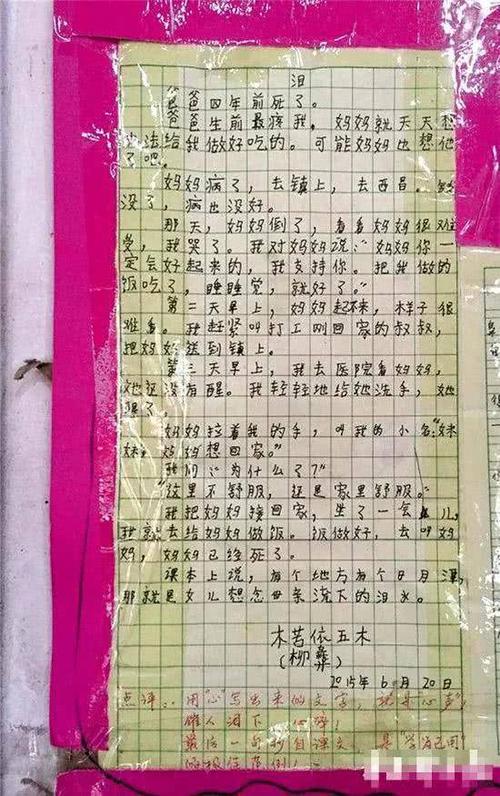 泪
爸爸四年前死了。
爸爸生前最疼我，妈妈就天天想
办法给我做好吃的。可能妈妈也想他
了吧。
妈妈病了，去镇上，去西昌。钱
没了，病也没好。
那天，妈妈倒了，看看妈妈很难
受，我哭了。我对妈妈说：“妈妈你一
定会好起来的，我支持你。把我做的
饭吃了，睡睡觉，就好了。”
第二天早上，妈妈起不来，样子很
难看。我赶紧叫打工刚回家的叔叔，
把妈妈送到镇上。
第三天早上，我去医院看妈妈，
她还没有醒。我轻轻地给她洗手，她
醒了。
妈妈拉着我的手，叫我的小名：“妹
妹，妈妈想回家。”
我问：“为什么了？”
“这里不舒服，还是家里舒服。”
我把妈妈接回家，坐了一会儿，
我就去给妈妈做饭。饭做好，去叫妈
妈，妈妈已经死了。
课本上说，有个地方有个日月潭，
那就是女儿想念母亲流下的泪水。
木苦依五木
（柳彝）
2015年6月20日
点评：用“心”写出来的文字，就是心声，
催人泪下
最后一句抄自课文，是“学为己用”